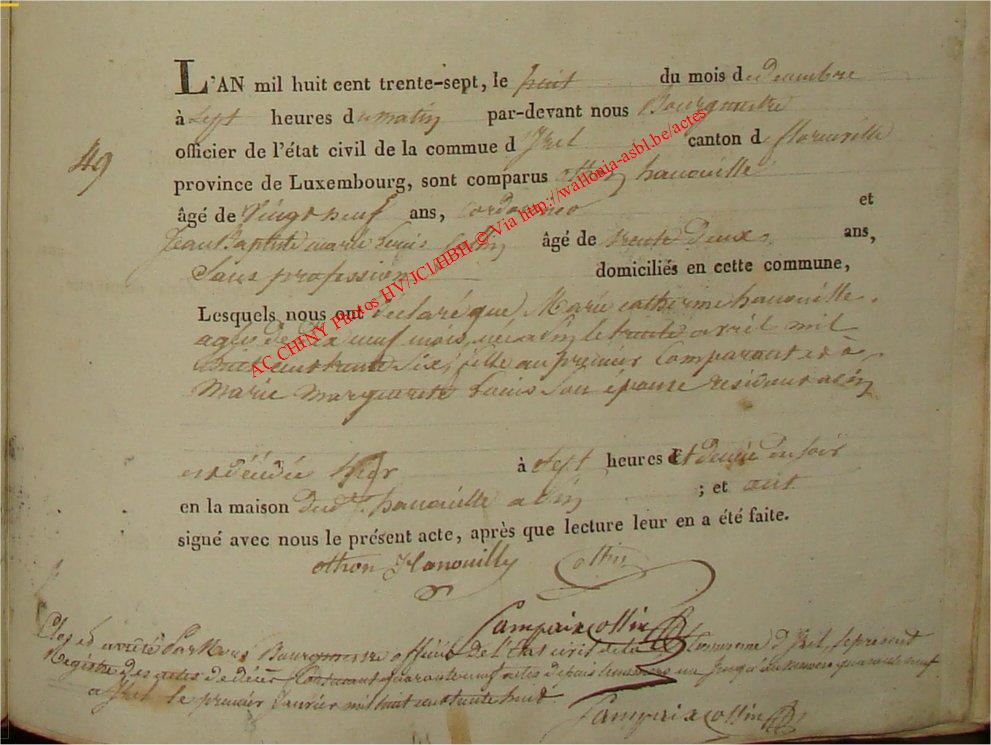 L'AN mil huit cent trente-sept, le huit du mois de decembre
à Sept heures du matin par-devant nous Bourgmestre
officier de l'état civil de la commune d'Izel canton de florenville
49
province de Luxembourg, sont comparus hanouille
âgé de Vingt neuf ans, et
Jean Baptiste marie Louis âgé de trente deux ans,
Sans profession domiciliés en cette commune,
Lesquels nous ont déclaré que Marie catherine hanouille
agée de neuf mois, née le trente avril mil
huit cent trente Six, fille au premier Comparant et à
Marie Marguerite Louis Son épouse résidant
est décédée hier à Sept heures et demie du soir
en la maison dud. hanouille ; et ont
signé avec nous le présent acte, après que lecture leur en a été faite.
othon Hanouilly
Clos et arrêté Par Nous Bourgmestre officier de l'Etat civil de la Commune d'Izel, le présent
Registre des actes de décès Contenant quarante neuf actes depuis un Jusqu'au numero quarante neuf
a Izel le premier Janvier mil huit cent trente huit
AC CHINY Photos HV/JCl/HBH © Via http://wallonia-asbl.be/actes